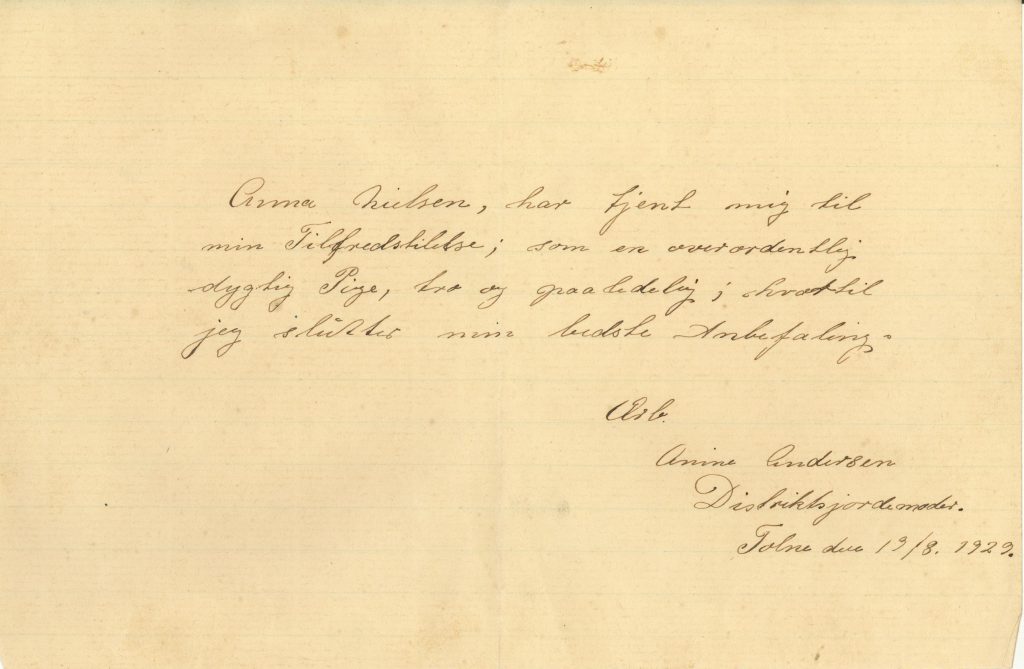 Anna Nielsen, har tjent mig til
min Tilfredstillelse; som en overordentlig
dygtig Pige, tro og paalidelig; hvortil
jeg slutter min bedste Anbefaling.
Ærb.
Anine Andersen
Distriktsjordemoder.
Tolne den 19/8. 1929.